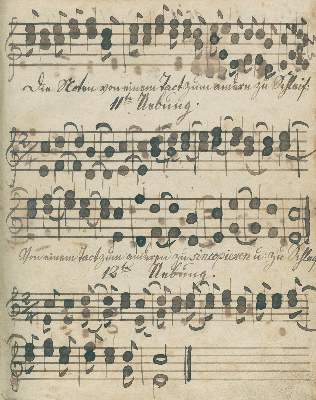 Die Noten von einem Tact zum andern zu Schleif.
11te Uebung.
Von einem Tact zum anderen zu sincopieren u. zu Schleif
12te Uebung.